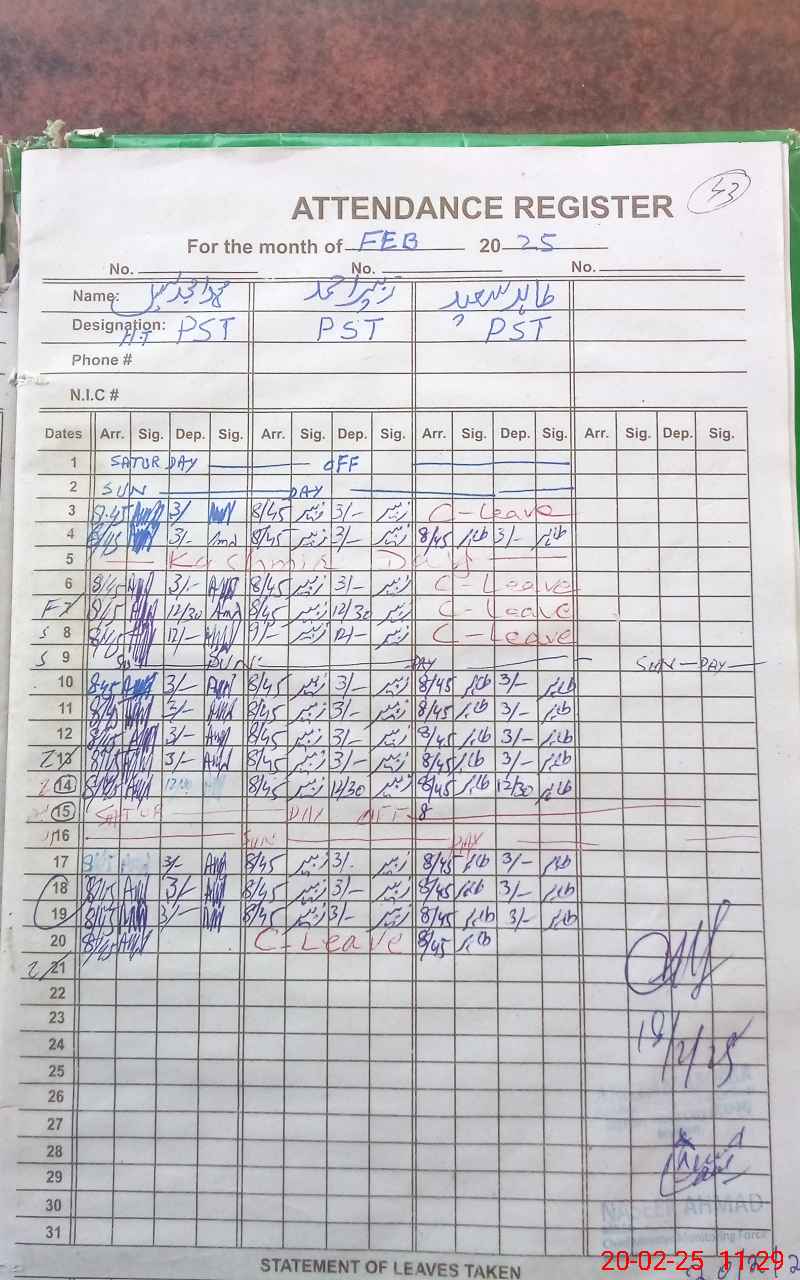 43
ATTENDANCE REGISTER
For the month of FEB 2025
No. No. No.
Name: محمد امجد زبیر احمد طاہر سعید
Designation: H.T PST PST PST
Phone #
N.I.C #
Dates Arr. Sig. Dep. Sig. Arr. Sig. Dep. Sig. Arr. Sig. Dep. Sig. Arr. Sig. Dep. Sig.
1 SATURDAY OFF
2 SUN DAY
3 8/45 3/ 8/45 زبیر 3/- زبیر C-Leave
4 8/45 3/- 8/45 زبیر 3/- زبیر 8/45 طاہر 3/- طاہر
5 Kashmir Day
6 8/45 3/- 8/45 زبیر 3/- زبیر C-Leave
7 8/45 12/30 8/45 زبیر 12/30 زبیر C-Leave
8 8/45 12/- 9/- زبیر 12/- زبیر C-Leave
S 9 SUN DAY SUN-DAY
10 8/45 3/- 8/45 زبیر 3/- زبیر 8/45 طاہر 3/- طاہر
11 8/45 3/- 8/45 زبیر 3/- زبیر 8/45 طاہر 3/- طاہر
12 8/45 3/- 8/45 زبیر 3/- زبیر 8/45 طاہر 3/- طاہر
13 8/45 3/- 8/45 زبیر 3/- زبیر 8/45 طاہر 3/- طاہر
14 8/45 8/45 زبیر 12/30 زبیر 8/45 طاہر 12/30 طاہر
15 SATUR DAY OFF 8
16 SUN DAY
17 3/- 8/45 زبیر 3/- زبیر 8/45 طاہر 3/- طاہر
18 8/45 3/- 8/45 زبیر 3/- زبیر 8/45 طاہر 3/- طاہر
19 8/45 3/- 8/45 زبیر 3/- زبیر 8/45 طاہر 3/- طاہر
20 8/45 C-Leave 8/45 طاہر
21
22
23
24 19/2/25
25
26
27
28
29
30 NADEEM AHMAD
31 Monitoring Force
STATEMENT OF LEAVES TAKEN
20-02-25 11:29